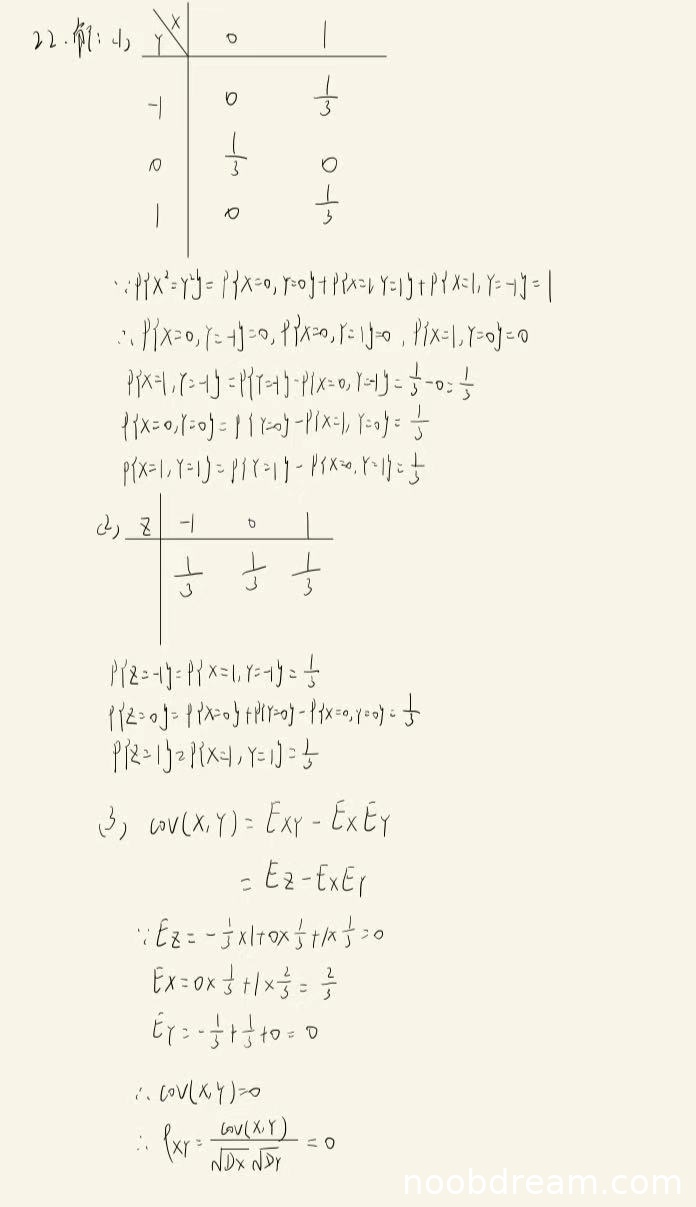 22. 解: (1)
Y\X 0 1
-1 0 1/3
0 1/3 0
1 0 1/3
∵ P{X²=Y²}= P{X=0, Y=0}+P{X=1, Y=1}+P{X=1, Y=-1}=1
∴ P{X=0, Y=-1}=0, P{X=0, Y=1}=0, P{X=1, Y=0}=0
P{X=1, Y=-1}=P{Y=-1}-P{X=0, Y=-1}=1/3-0=1/3
P{X=0, Y=0}=P{Y=0}-P{X=1, Y=0}=1/3
P{X=1, Y=1}=P{Y=1}-P{X=0, Y=1}=1/3
(2) Z -1 0 1
1/3 1/3 1/3
P{Z=-1}=P{X=1, Y=-1}=1/3
P{Z=0}=P{X=0}+P{Y=0}-P{X=0, Y=0}=1/3
P{Z=1}=P{X=1, Y=1}=1/3
(3) cov(X,Y)=EXY-EXEY
=EZ-EXEY
∵ EZ=-1/3×1+0×1/3+1×1/3=0
EX=0×1/3+1×2/3=2/3
EY=-1/3+1/3+0=0
∴ cov(X,Y)=0
∴ ρXY=cov(X,Y)/√DX√DY=0
noobdream.com